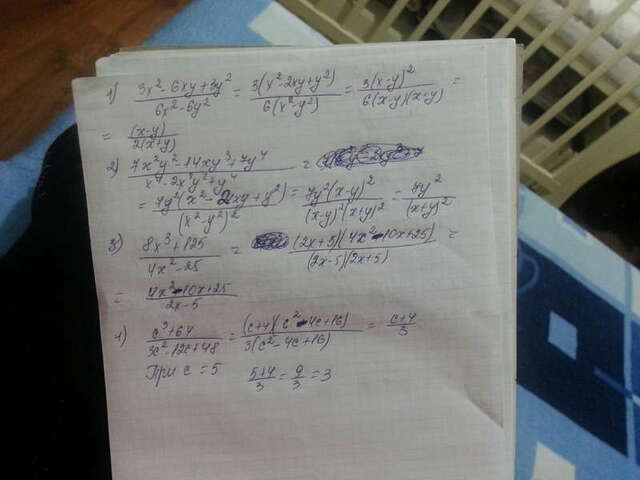 1) (3x² - 6xy + 3y²)/(6x² - 6y²) = 3(x² - 2xy + y²)/6(x² - y²) = 3(x-y)²/6(x-y)(x+y) =
= (x-y)/2(x+y)
2) (7x²y² - 14xy³ + 7y⁴)/(x⁴ - 2x²y² + y⁴) =
= 7y²(x² - 2xy + y²)/(x² - y²)² = 7y²(x-y)²/(x-y)²(x+y)² = 7y²/(x+y)²
3) (8x³ + 125)/(4x² - 25) = (2x+5)(4x² - 10x + 25)/(2x-5)(2x+5) =
= (4x² - 10x + 25)/(2x-5)
4) (c³ + 64)/(3c² - 12c + 48) = (c+4)(c² - 4c + 16)/3(c² - 4c + 16) = (c+4)/3
При c = 5 (5+4)/3 = 9/3 = 3